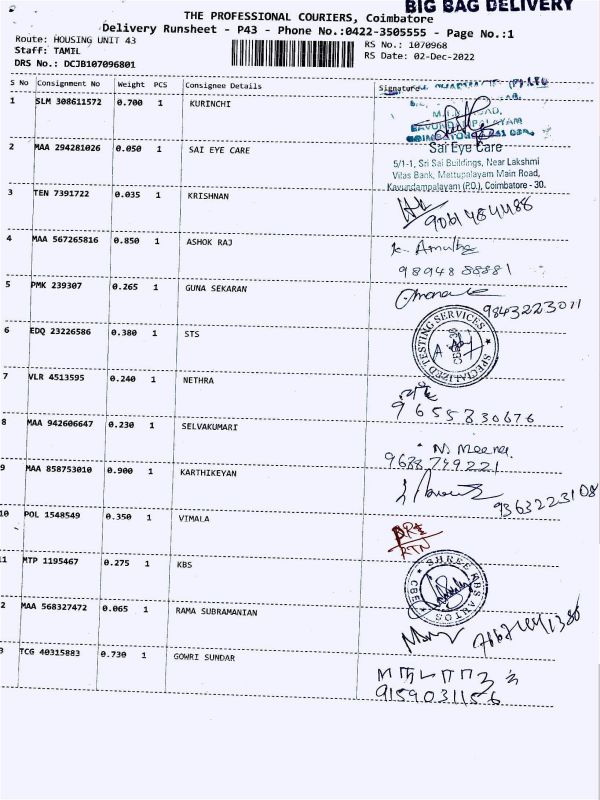 BIG BAG DELIVERY
THE PROFESSIONAL COURIERS, Coimbatore
Delivery Runsheet - P43 - Phone No.:0422-3505555 - Page No.:1
Route: HOUSING UNIT 43
RS No.: 1070968
Staff: TAMIL
RS Date: 02-Dec-2022
DRS No.: DCJB107096801
S No Consignment No Weight PCS Consignee Details Signature
1 SLM 308611572 0.700 1 KURINCHI
2 MAA 294281026 0.050 1 SAI EYE CARE
Sai Eye Care
5/1-1, Sri Sai Buildings, Near Lakshmi
Vilas Bank, Mettupalayam Main Road,
Kavundampalayam (P.O.), Coimbatore - 30.
3 TEN 7391722 0.035 1 KRISHNAN
9061484488
4 MAA 567265816 0.850 1 ASHOK RAJ
98948 88881
5 PMK 239307 0.265 1 GUNA SEKARAN
9843223011
6 EDQ 23226586 0.380 1 STS
SPECIALIZED TESTING SERVICES
7 VLR 4513595 0.240 1 NETHRA
9655830676
8 MAA 942606647 0.230 1 SELVAKUMARI
N. Meena
9688749221
9 MAA 858753010 0.900 1 KARTHIKEYAN
9363223108
10 POL 1548549 0.350 1 VIMALA
RTN
11 MTP 1195467 0.275 1 KBS
2 MAA 568327472 0.065 1 RAMA SUBRAMANIAN
3 TCG 40315883 0.730 1 GOWRI SUNDAR
9159031156